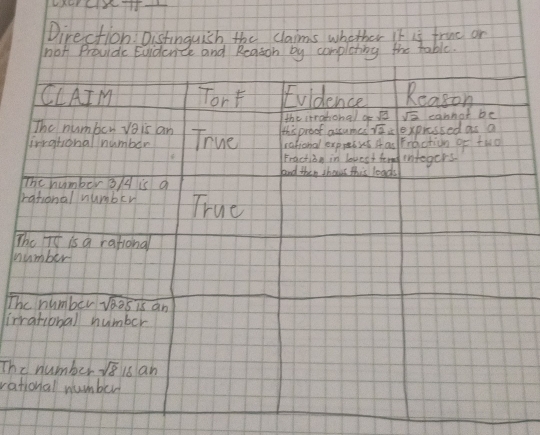 Exercise # 1
Direction: Distinguish the claims whether it is true or
not Provide Evidence and Reason by completing the table.
CLAIM
T or F
Evidence
Reason
The number √2 is an
irrational number
True
the irrational of √2
this proof assumes √2 is
rational expresses it as
Fraction in lowest
and then shows this leads
√2 cannot be
expressed as a
Fraction of two
integers
The number 3/4 is a
rational number
True
The π is a rational
number
The number √225 is an
irrational number
The number √8 is an
rational number